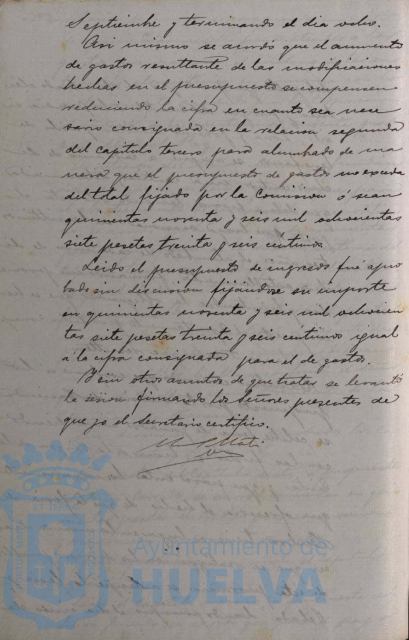 Septiembre y terminando el dia ocho.
Asi mismo se acordó que el aumento
de gastos resultante de las modificaciones
hechas en el presupuesto se compensen
reduciendo la cifra en cuanto sea nece
sario consignada en la relacion segunda
del capitulo tercero para alumbrado de ma
nera que el presupuesto de gastos no exceda
del total fijado por la Comision ó sean
quinientas noventa y seis mil ochocientas
siete pesetas treinta y seis céntimos.
Leido el presupuesto de ingresos fué apro
bado sin discusion fijandose su importe
en quinientas noventa y seis mil ochocien
tas siete pesetas treinta y seis céntimos igual
á la cifra consignada para el de gastos.
Y sin otros asuntos de que tratar se levantó
la sesion firmando los Señores presentes de
que yo el Secretario certifico.
Ayuntamiento de
HUELVA